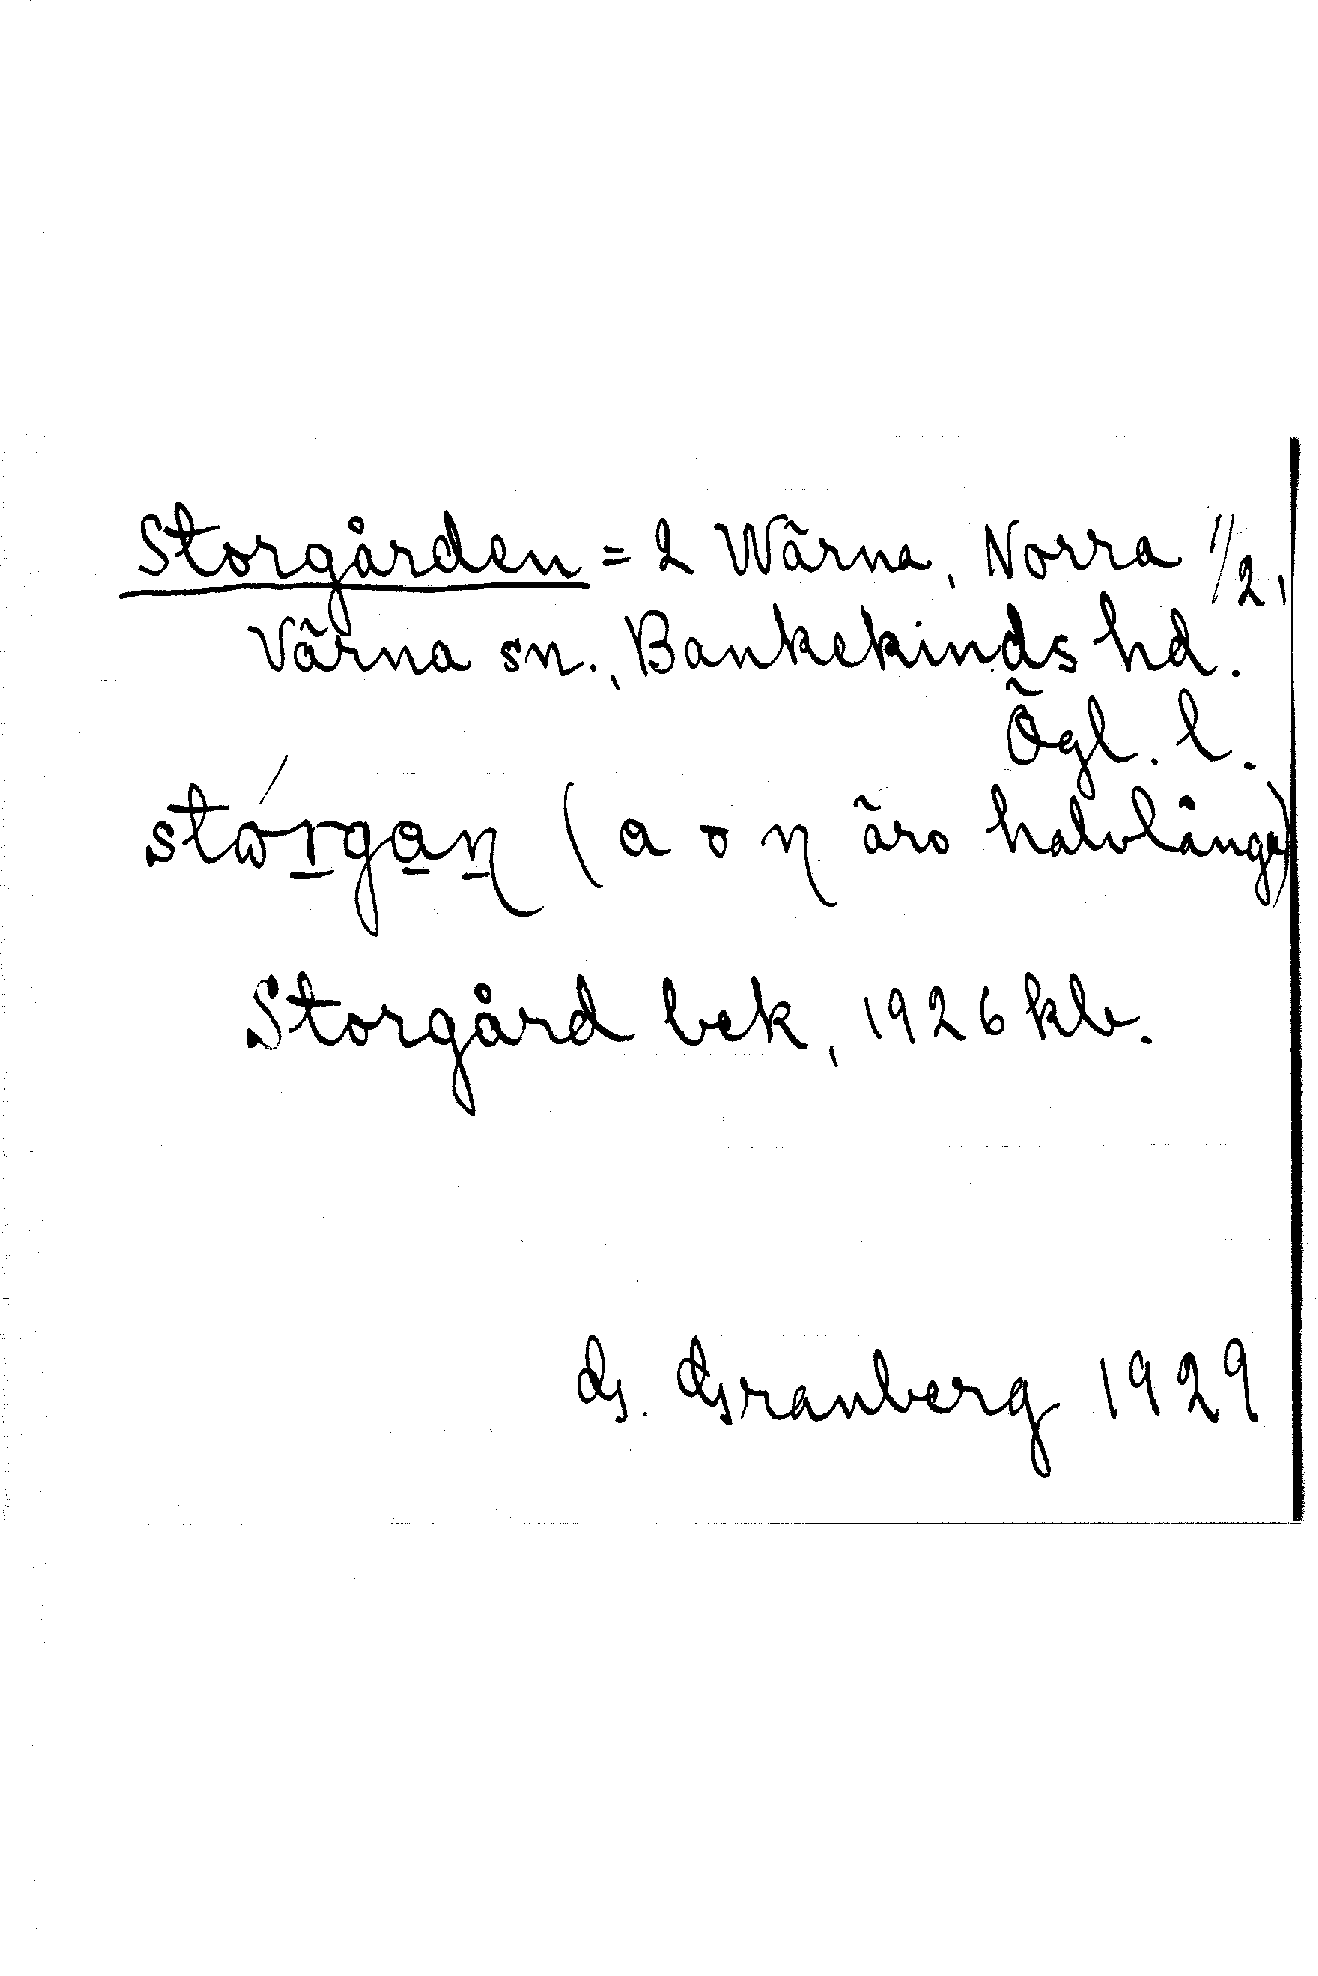 Storgården = 2 Wärna, Norra 1/2,
Värna sn., Bankekinds hd.
Ögl. l.
(a o ɳ äro halvlånga)
Storgård bek, 1926 klb.
G. Granberg 1929